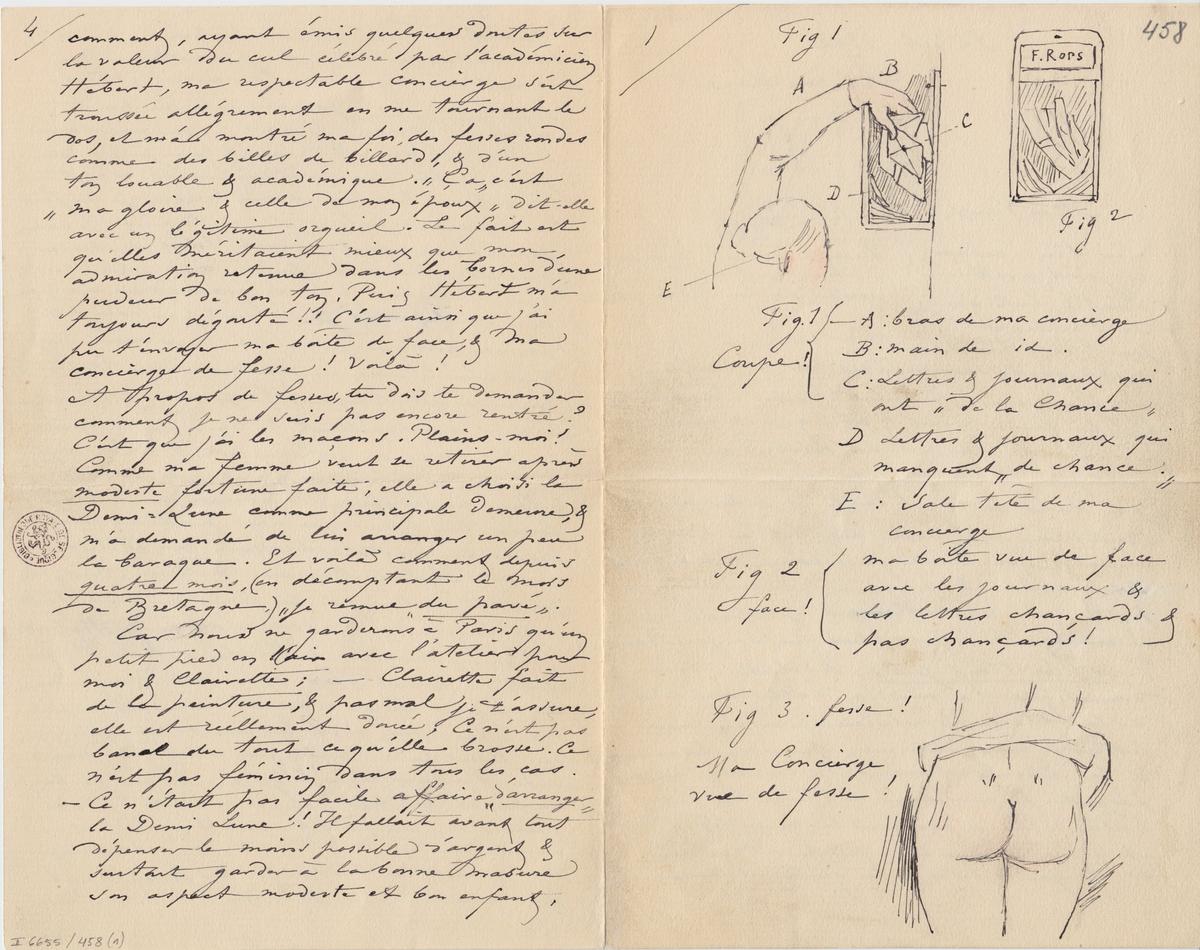 4
comment, ayant émis quelques doutes sur
la valeur du cul célébré par l'académicien
Hébert, ma respectable concierge s'est
troussée allégrement en me tournant le
dos, et m'a montré ma foi, des fesses rondes
comme des billes de billard, & d'un
ton louable & académique. „ Ça, c'est
„ ma gloire & celle de mon époux „ dit-elle
avec un légitime orgueil. Le fait est
qu'elles méritaient mieux que mon
admiration retenue dans les bornes d'une
pudeur de bon ton. Puis Hébert m'a
toujours dégouté!! C'est ainsi que j'ai
pu t'envoyer ma boîte de face, & Ma
concierge de fesse! Voilà!
A propos de fesses, tu dois te demander
comment je ne suis pas encore rentré?
C'est que j'ai les maçons. Plains-moi!
Comme ma femme veut se retirer après
modeste fortune faite, elle a choisi la
Demi-Lune comme principale demeure, &
m'a demandé de lui arranger un peu
la baraque. Et voilà comment depuis
quatre mois, (en décomptant le mois
de Bretagne) „ je remue du pavé „.
Car nous ne garderons à Paris qu'un
petit pied en l'air avec l'atelier pour
moi & Clairette; — Clairette fait
de la peinture, & pas mal je t'assure,
elle est réellement douée, Ce n'est pas
banal du tout ce qu'elle brosse. Ce
n'est pas féminin dans tous les cas.
— Ce n'était pas facile affaire „ d'arranger „
la Demi Lune! Il fallait avant tout
dépenser le moins possible d'argent &
surtout garder à la bonne masure
son aspect modeste et bon enfant,
I 6655 / 458 (1)
1
458
Fig 1
A
B
C
D
E
F. Rops
Fig 2
Fig. 1
Coupe!
A: bras de ma concierge
B: main de id.
C: Lettres & journaux qui
ont „ de la Chance „
D Lettres & journaux qui
manquent „ de chance. „
E: Sale tête de ma
concierge
Fig 2
face!
ma boîte vue de face
avec les journaux &
les lettres chançards &
pas chançards!
Fig 3. fesse!
Ma Concierge
vue de fesse!